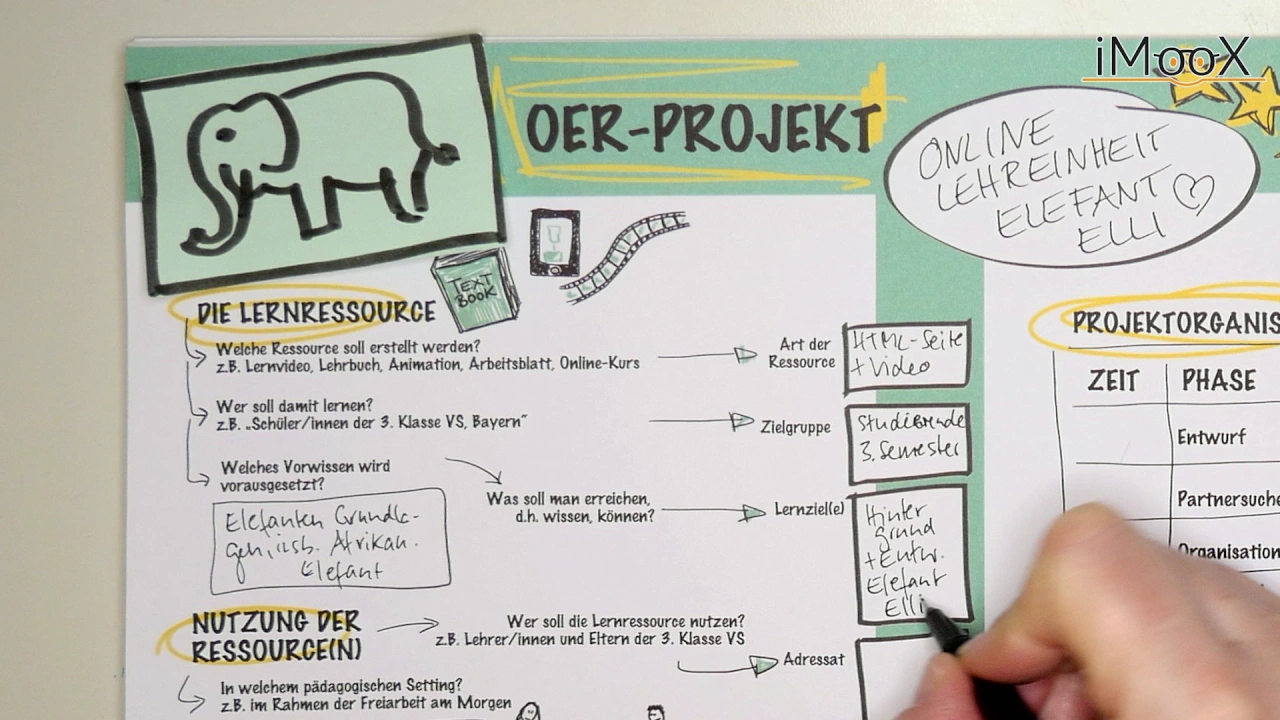 iMooX
OER-PROJEKT
ONLINE
LEHREINHEIT
ELEFANT
ELLI
TEXT
BOOK
DIE LERNRESSOURCE
Welche Ressource soll erstellt werden?
z.B. Lernvideo, Lehrbuch, Animation, Arbeitsblatt, Online-Kurs
Art der
Ressource
HTML-Seite
+ Video
Wer soll damit lernen?
z.B. „Schüler/innen der 3. Klasse VS, Bayern“
Zielgruppe
Studierende
3. Semester
Welches Vorwissen wird
vorausgesetzt?
Elefanten Grundla-
gen, insb. Afrikan.
Elefant
Was soll man erreichen,
d.h. wissen, können?
Lernziel(e)
Hinter
grund
+ Entw.
Elefant
Elli
NUTZUNG DER
RESSOURCE(N)
Wer soll die Lernressource nutzen?
z.B. Lehrer/innen und Eltern der 3. Klasse VS
Adressat
In welchem pädagogischen Setting?
z.B. im Rahmen der Freiarbeit am Morgen
PROJEKTORGANIS
ZEIT PHASE
Entwurf
Partnersuche
Organisation